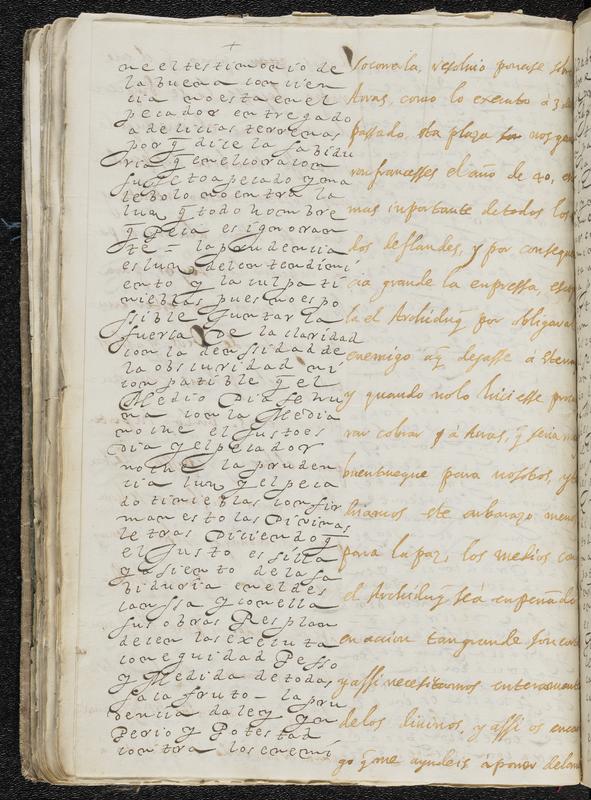 +
ne el testimonio de
la buena concien
cia no esta en el
pecador entregado
a delicias terrenas
por q̃ dice la sabidu
ria q̃
sugeto a pecado y ma
lebolo no entra la
luz q̃ todo hombre
q̃ Peca es ignoran
te = la prudencia
es luz del entendimi
ento y la culpa ti
nieblas pues no es po
ssible Juntar la
fuerza De la claridad
con la denssidad de
la obscuridad ni
conpatible q̃ el
Medio Dia se hu
na con la Media
noche el Justo es
Dia y el pecador
noche la pruden
cia luz y el peca
do tinieblas confir
man esto las Divinas
letras Diciendo q̃
el Justo es silla
y asiento de la sa
biduria en el des
canssa y con ella
sus obras Resplan
decen las executa
con eguidad Pesso
y Medida de todas
saca fruto - la pru
dencia da ley y yn
Perio y Potestad
contra los enemi
socorrela, resolvio ponerse sobre
Arras, como lo executo a 3 de
passado, esta plaza nos gana
ron franceses el año de 40, es
mas inportante de todos los
dos de flandes, y por consequen
cia grande la enpressa,
la el Archiduq̃ por obligar a
enemigo a q̃ dejasse a Stena
y quando no lo hiciesse procu
rar cobrar a Arras, q̃ seria
buen trueque para nosotros, y
este enbarazo menos
para la paz, los medios con
el Archiduq̃ se a enpeñado
en accion tan grande son cortos
y assi necesitamos enteramente
de los divinos, y assi os encar
go q̃ me ayudeis a poner delante